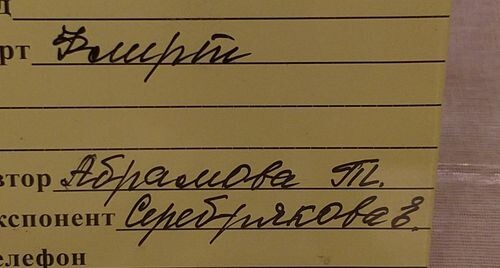 д
рт Флирт
втор Абрамова Т.
кспонент Серебрякова Е.
елефон